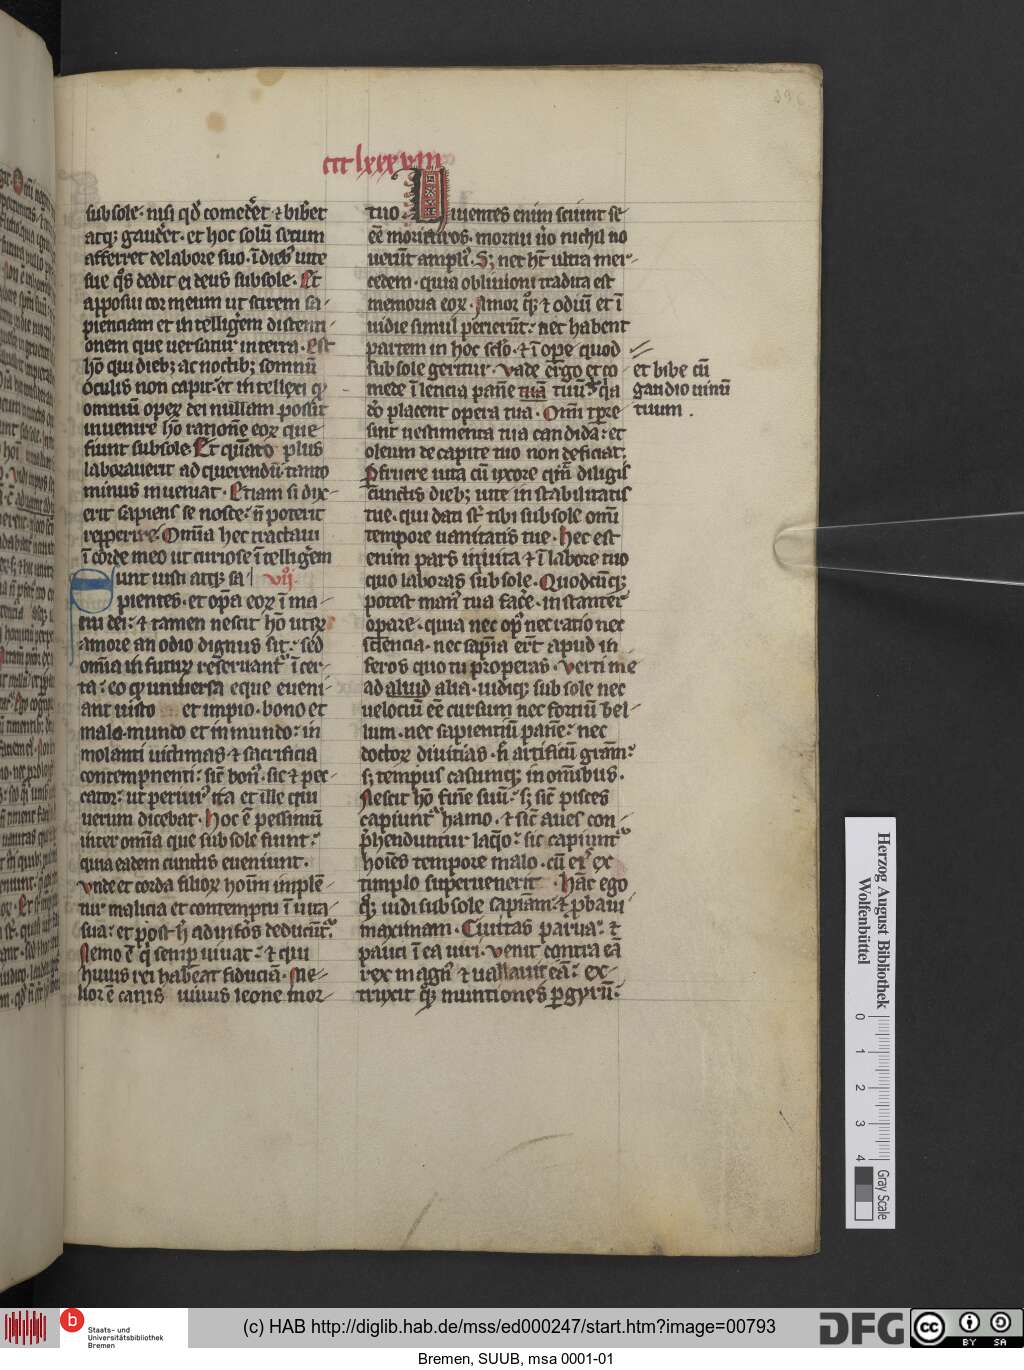 ccclxxxviii
subsole· nisi qd̓ comed̓et ⁊ bib̓et
atq; gaud̓et· et hoc solū secum
afferret delabore suo· ī dieb; uite
sue q̄s dedit ei deus subsole· Et
apposui cor meum ut scirem sa-
pienciam et intelligem distenti-
onem que uersatur interra· Est
hō qui dieb; ac noctib; somnū
oculis non capit· et intellexi q
omniū oper dei nullam possit
inuenire hō rationē eor que
fiunt subsole· Et quāto plus
laborauerit ad querendū· tanto
minus inueniat· Etiam si dix-
erit sapiens se nosce· n̄ poterit
repperire· Omīa hec tractaui
ī corde meo ut curiose ītelligem
Sunt iusti atq; sa vij·
pientes· et opa eor ī ma-
nu dei· ⁊ tamen nescit hō utrū
amore an odio dignus sit· sed
omīa in futur reseruant ī cer-
ta· eo q uniuersa eque eueni-
ant iusto et impio· bono et
malo· mundo et inmundo· in
molanti uictimas ⁊ sacrificia
contempnenti· sic̄ bon· sic ⁊ pec-
cator· ut periur ita et ille qui
uerum dicebat· Hoc ē pessimū
inter omīa que subsole fiunt·
quia eadem cunctis eueniunt·
vnde et corda filior hoīm implē-
tur malicia et contemptu ī uita
sua· et post h ad inferos deducūt·
Nemo ē q semp uiuat· ⁊ qui
huius rei habeat fiduciā· Me-
lior ē canis uiuus leone mor-
tuo· Viuentes enim sciunt se
eē morituros· mortui uo nichil no
uerūt ampli· S; nec hn̄t ultra mer-
cedem· quia obliuioni tradita est
memoria eor· Amor q; ⁊ odiū et ī
uidie simul perierūt· nec habent
partem in hoc sclo· ⁊ ī ope quod
subsole geritur· Vade ergo et co
mede ī leticia panē tuā tuū· qa
deo placent opera tua· Omi tpre
sint uestimenta tua candida· et
oleum de capite tuo non deficiat·
Pfruere uita cū uxore quā diligis
cunctis dieb; uite instabilitatis
tue· qui dati st tibi subsole omi
tempore uanitatis tue· Hec est
enim pars inuita ⁊ ī labore tuo
quo laboras subsole· Quodcūq;
potest man tua facē· instanter
opare· quia nec op nec ratio nec
sciencia· nec sapīa ert apud in
feros quo tu properas· Verti me
ad aliud alia· uidiq; subsole nec
uelociū eē cursum nec fortiū bel-
lum· nec sapientiū panē· nec
doctor diuitias· n̄ artificū gram·
s; tempus casumq; in omibus·
Nescit hō finē suū· s; sic̄ pisces
capiunt hamo· ⁊ sic̄ aues con-
phenduntur laqo· sic capiunt
hoīes tempore malo· cū eis ex
timplo superuenerit· Hāc ego
q; uidi subsole sapiam· ⁊ pbaui
maximam· Ciuitas parua· ⁊
pauci ī ea uiri· venit contra eā
rex magn ⁊ uallauit eā· ex-
truxit q; munitiones pgyrū·
et bibe cū
gaudio uinū
tuum .
Herzog August Bibliothek
Wolfenbüttel
0 1 2 3 4
Gray Scale
b
Staats- und
Universitätsbibliothek
Bremen
(c) HAB http://diglib.hab.de/mss/ed000247/start.htm?image=00793
DFG
cc
BY SA
Bremen, SUUB, msa 0001-01